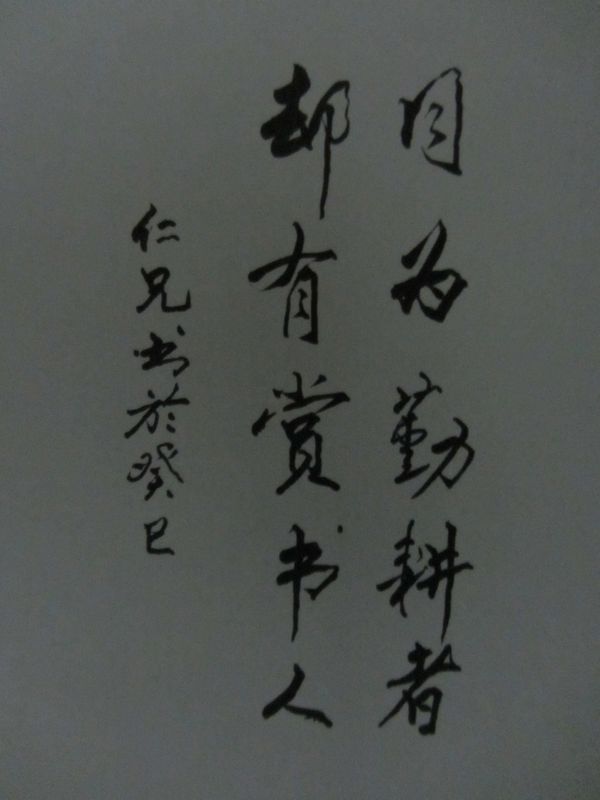 同为勤耕者
却有赏书人
仁兄书於癸巳